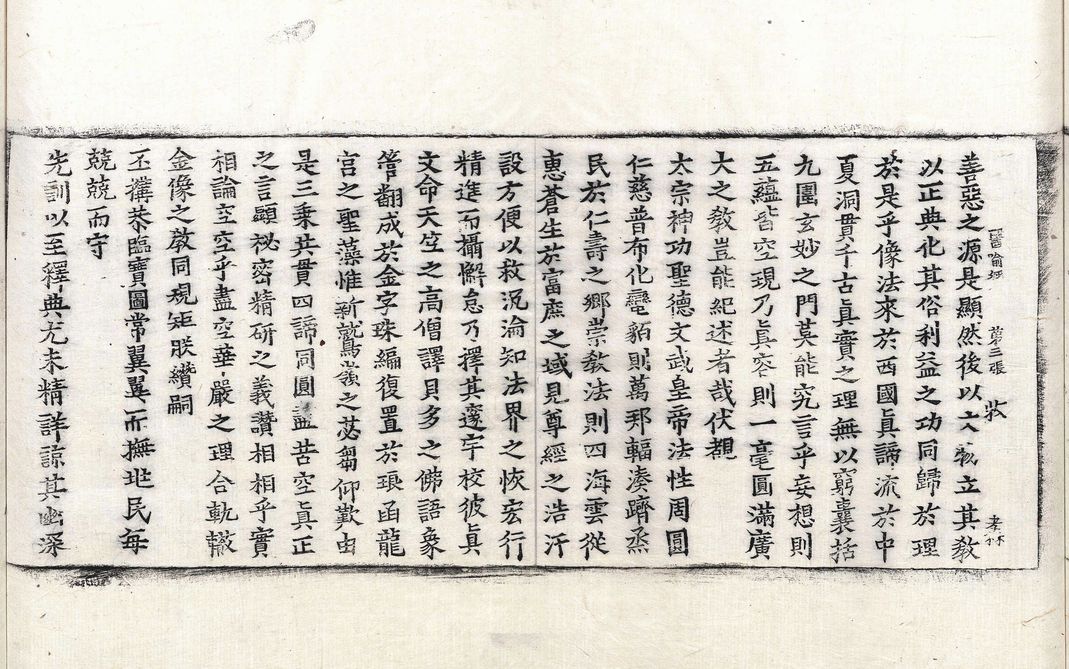 醫喻經 第三張 孝林
善惡之源是顯然後以六立其教
以正典化其俗利益之功同歸於理
於是乎像法來於西國眞諦流於中
夏洞貫千古眞實之理無以窮囊括
九圍玄妙之門莫能究言乎妄想則
五蘊皆空現乃眞容則一毫圓滿廣
大之教豈能紀述者哉伏覩
太宗神功聖德文武皇帝法性周圓
仁慈普布化蠻貊則萬邦輻湊躋烝
民於仁壽之鄉崇教法則四海雲從
惠蒼生於富庶之域見尊經之浩汗
設方便以救沉淪知法界之恢宏行
精進而攝懈怠乃擇其邃宇校彼眞
文命天竺之高僧譯貝多之佛語象
管翻成於金字珠編復置於琅函龍
宮之聖藻惟新鷲嶺之苾芻仰歎由
是三乘共貫四諦同圓盖苦空眞正
之言顯祕密精研之義讚相相乎實
相論空空乎盡空華嚴之理合軌轍
金像之教同規矩朕纘嗣
丕搆恭臨寶圖常翼翼而撫兆民每
兢兢而守
先訓以至釋典尤未精詳諒其幽深